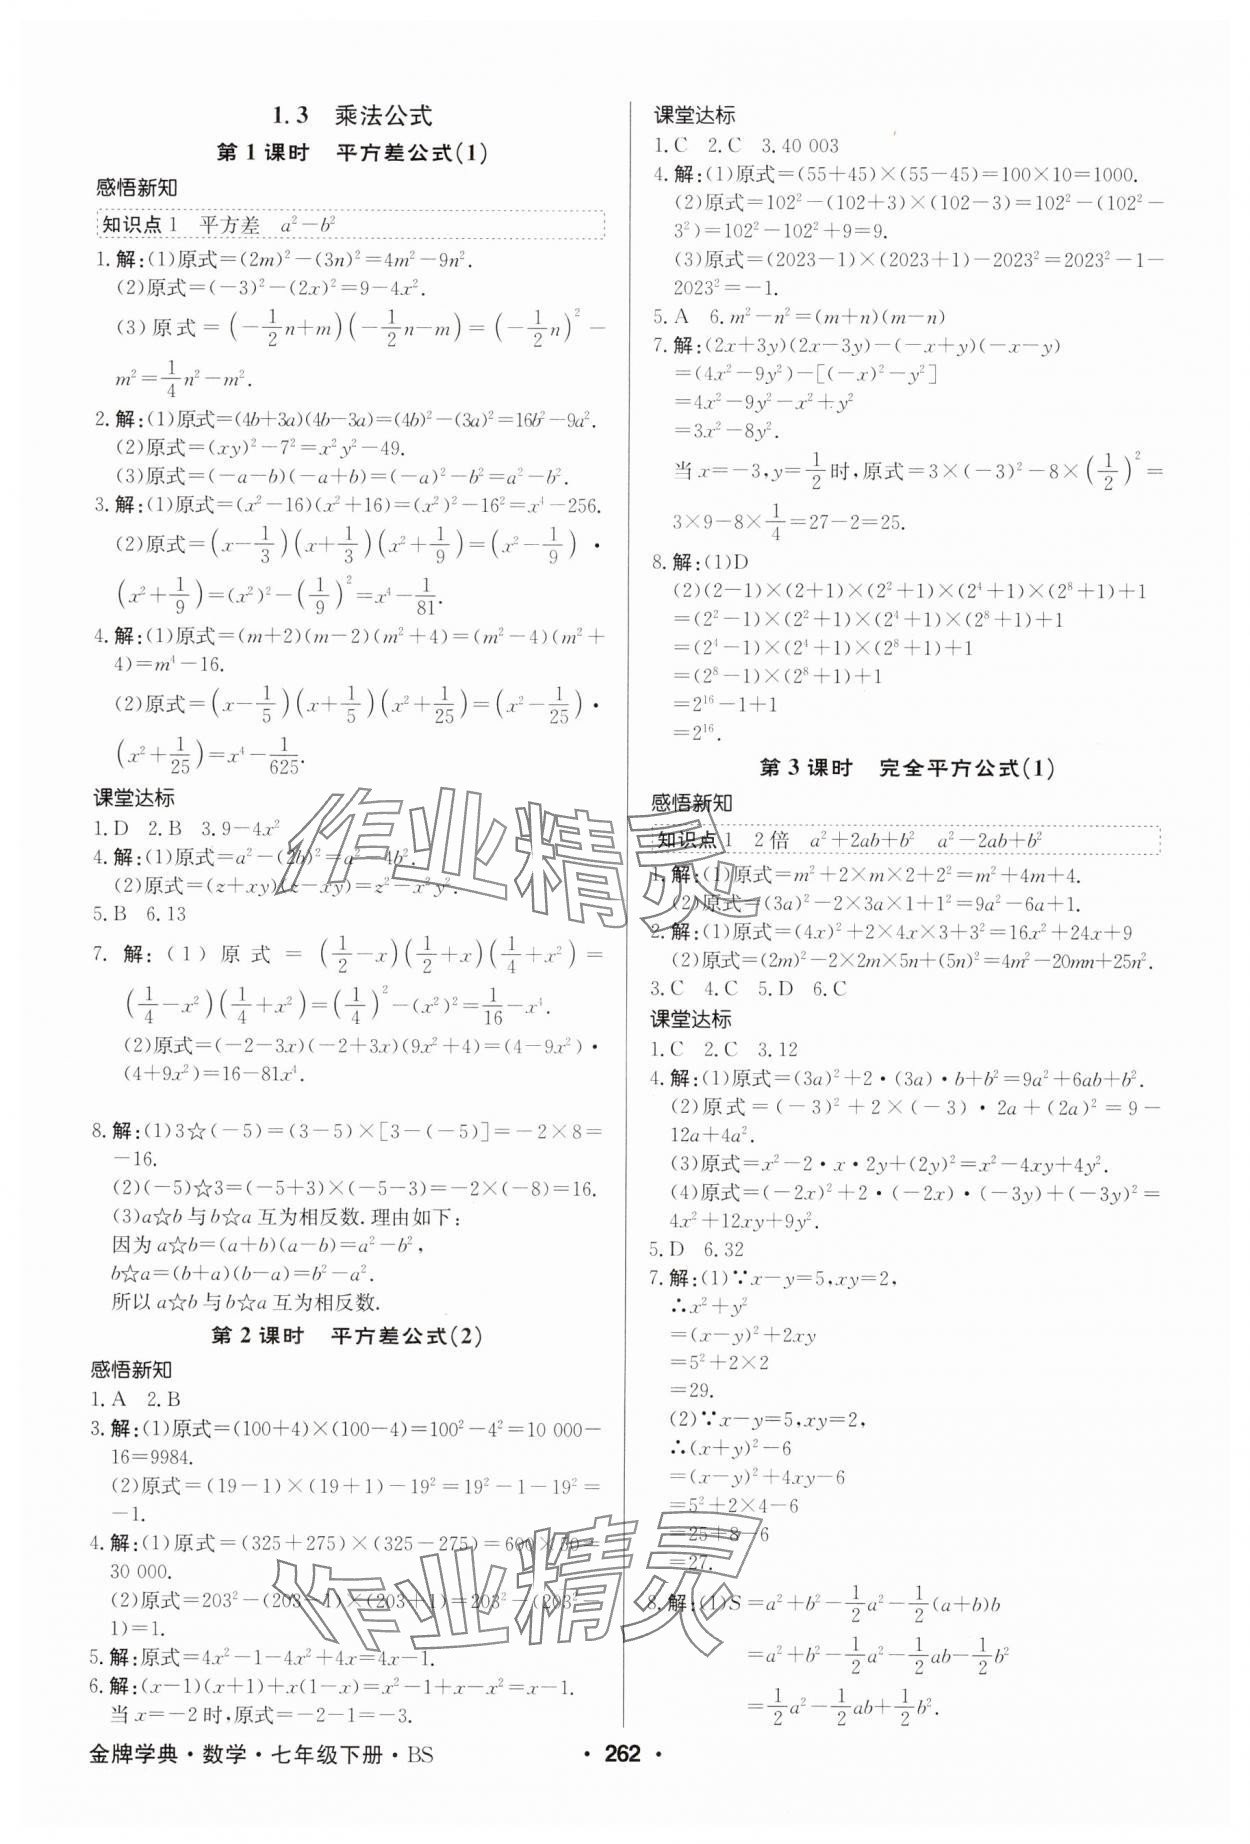 1.3 乘法公式
第1课时 平方差公式(1)
感悟新知
知识点1 平方差 a²-b²
1.解:(1)原式=(2m)²-(3n)²=4m²-9n².
(2)原式=(-3)²-(2x)²=9-4x².
(3)原式=(-1/2n+m)(-1/2n-m)=(-1/2n)²-
m²=1/4n²-m².
2.解:(1)原式=(4b+3a)(4b-3a)=(4b)²-(3a)²=16b²-9a².
(2)原式=(xy)²-7²=x²y²-49.
(3)原式=(-a-b)(-a+b)=(-a)²-b²=a²-b².
3.解:(1)原式=(x²-16)(x²+16)=(x²)²-16²=x⁴-256.
(2)原式=(x-1/3)(x+1/3)(x²+1/9)=(x²-1/9)·
(x²+1/9)=(x²)²-(1/9)²=x⁴-1/81.
4.解:(1)原式=(m+2)(m-2)(m²+4)=(m²-4)(m²+
4)=m⁴-16.
(2)原式=(x-1/5)(x+1/5)(x²+1/25)=(x²-1/25)·
(x²+1/25)=x⁴-1/625.
课堂达标
1.D 2.B 3.9-4x²
4.解:(1)原式=a²-(2b)²=a²-4b².
(2)原式=(z+xy)(z-xy)=z²-x²y².
5.B 6.13
7.解:(1)原式=(1/2-x)(1/2+x)(1/4+x²)=
(1/4-x²)(1/4+x²)=(1/4)²-(x²)²=1/16-x⁴.
(2)原式=(-2-3x)(-2+3x)(9x²+4)=(4-9x²)·
(4+9x²)=16-81x⁴.
8.解:(1)3☆(-5)=(3-5)×[3-(-5)]=-2×8=
-16.
(2)(-5)☆3=(-5+3)×(-5-3)=-2×(-8)=16.
(3)a☆b与b☆a互为相反数.理由如下:
因为a☆b=(a+b)(a-b)=a²-b²,
b☆a=(b+a)(b-a)=b²-a².
所以a☆b与b☆a互为相反数.
第2课时 平方差公式(2)
感悟新知
1.A 2.B
3.解:(1)原式=(100+4)×(100-4)=100²-4²=10 000-
16=9984.
(2)原式=(19-1)×(19+1)-19²=19²-1-19²=
-1.
4.解:(1)原式=(325+275)×(325-275)=600×50=
30 000.
(2)原式=203²-(203-1)×(203+1)=203²-(203²-
1)=1.
5.解:原式=4x²-1-4x²+4x=4x-1.
6.解:(x-1)(x+1)+x(1-x)=x²-1+x-x²=x-1.
当x=-2时,原式=-2-1=-3.
课堂达标
1.C 2.C 3.40 003
4.解:(1)原式=(55+45)×(55-45)=100×10=1000.
(2)原式=102²-(102+3)×(102-3)=102²-(102²-
3²)=102²-102²+9=9.
(3)原式=(2023-1)×(2023+1)-2023²=2023²-1-
2023²=-1.
5.A 6.m²-n²=(m+n)(m-n)
7.解:(2x+3y)(2x-3y)-(-x+y)(-x-y)
=(4x²-9y²)-[(-x)²-y²]
=4x²-9y²-x²+y²
=3x²-8y².
当x=-3,y=1/2时,原式=3×(-3)²-8×(1/2)²=
3×9-8×1/4=27-2=25.
8.解:(1)D
(2)(2-1)×(2+1)×(2²+1)×(2⁴+1)×(2⁸+1)+1
=(2²-1)×(2²+1)×(2⁴+1)×(2⁸+1)+1
=(2⁴-1)×(2⁴+1)×(2⁸+1)+1
=(2⁸-1)×(2⁸+1)+1
=2¹⁶-1+1
=2¹⁶.
第3课时 完全平方公式(1)
感悟新知
知识点1 2倍 a²+2ab+b² a²-2ab+b²
1.解:(1)原式=m²+2×m×2+2²=m²+4m+4.
(2)原式=(3a)²-2×3a×1+1²=9a²-6a+1.
2.解:(1)原式=(4x)²+2×4x×3+3²=16x²+24x+9
(2)原式=(2m)²-2×2m×5n+(5n)²=4m²-20mn+25n².
3.C 4.C 5.D 6.C
课堂达标
1.C 2.C 3.12
4.解:(1)原式=(3a)²+2·(3a)·b+b²=9a²+6ab+b².
(2)原式=(-3)²+2×(-3)·2a+(2a)²=9-
12a+4a².
(3)原式=x²-2·x·2y+(2y)²=x²-4xy+4y².
(4)原式=(-2x)²+2·(-2x)·(-3y)+(-3y)²=
4x²+12xy+9y².
5.D 6.32
7.解:(1)∵x-y=5,xy=2,
∴x²+y²
=(x-y)²+2xy
=5²+2×2
=29.
(2)∵x-y=5,xy=2,
∴(x+y)²-6
=(x-y)²+4xy-6
=5²+2×4-6
=25+8-6
=27.
8.解:(1)S=a²+b²-1/2a²-1/2(a+b)b
=a²+b²-1/2a²-1/2ab-1/2b²
=1/2a²-1/2ab+1/2b².
金牌学典·数学·七年级下册·BS
·262·
作业精灵
作业精灵